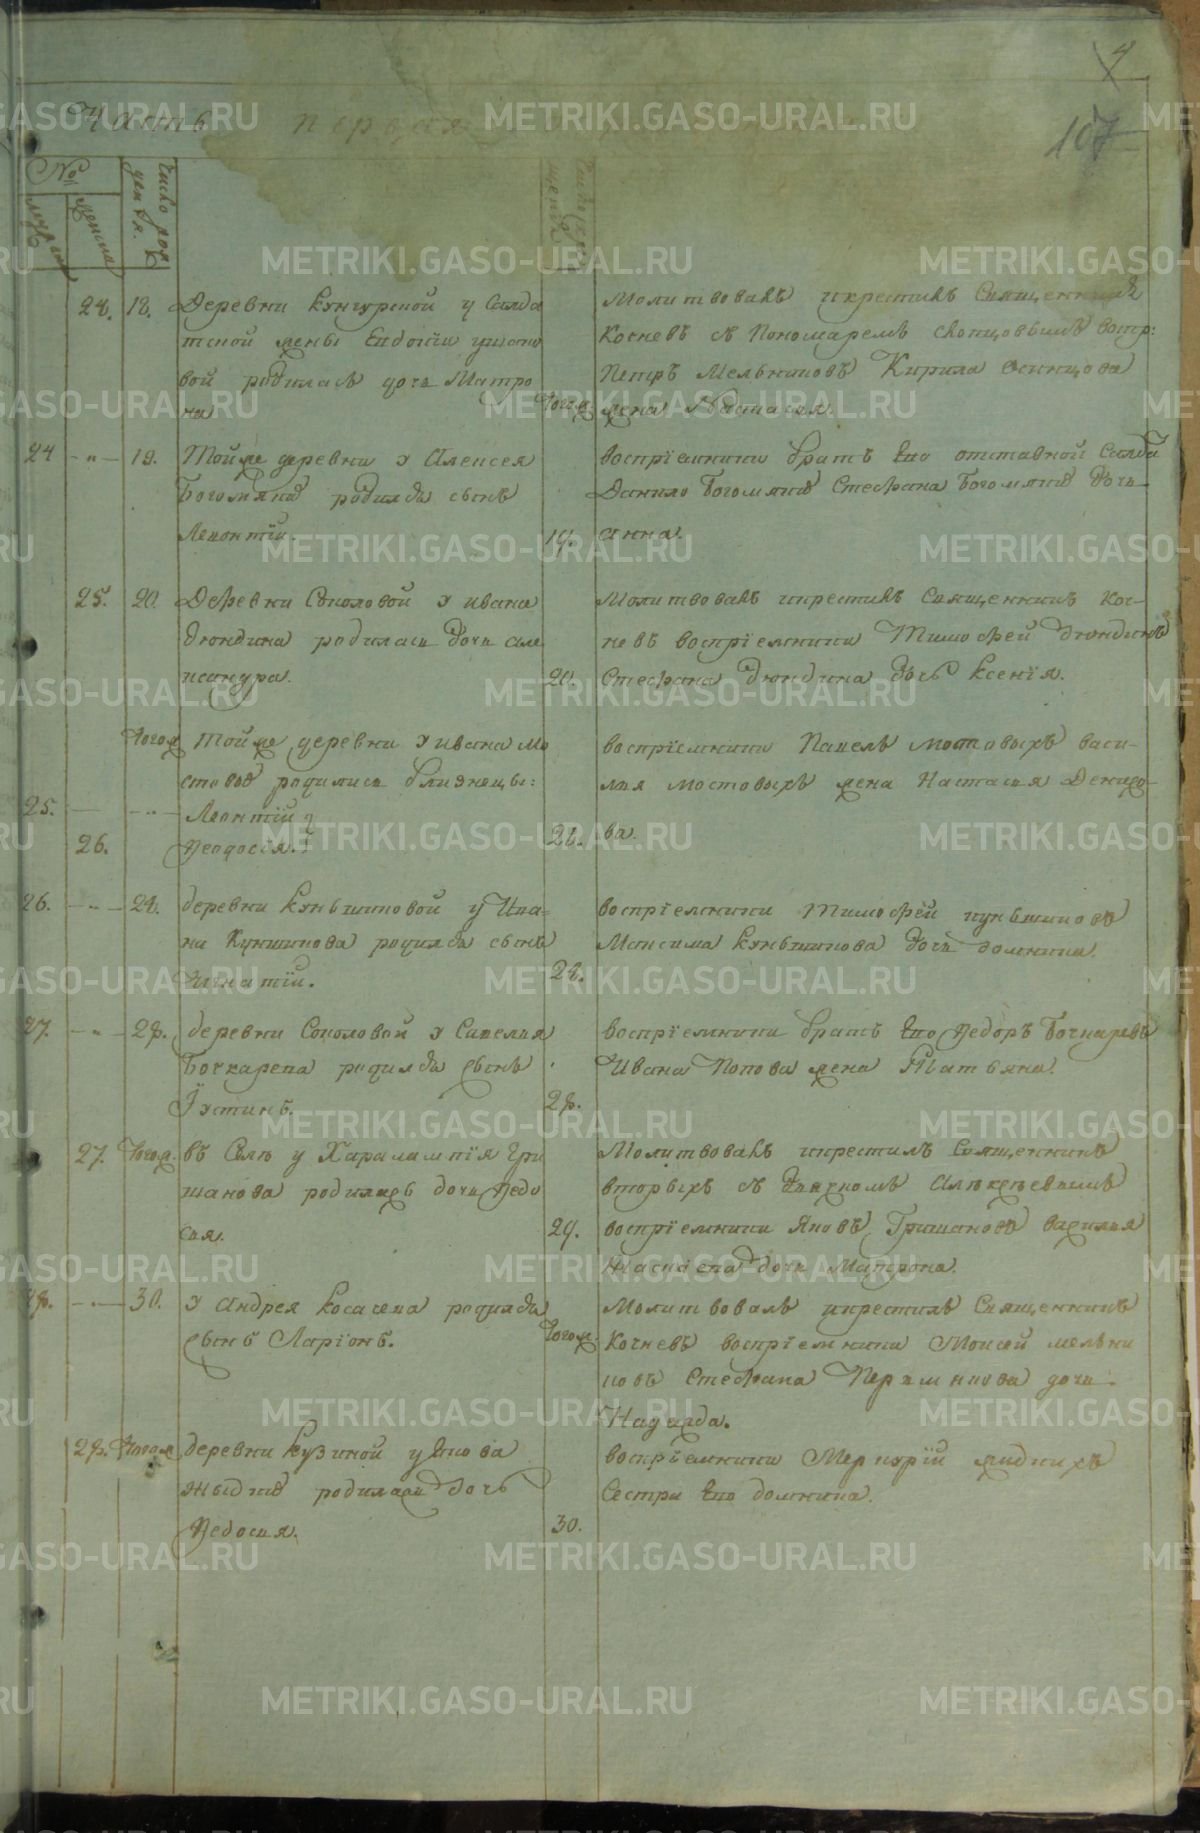 4
107
Часть первая
№
мужска
женска
Число рож
дения.
Число кре
щения
24. 18. Деревни Кунгурской у Салда
тской жены Евдокіи
вой родилась дочь Матро
на
Тогож
Молитвовалъ и крестилъ Священникъ
Кочневъ съ Пономаремъ Скопцовымъ востр:
Петръ Мельниковъ Кирила Осинцова
жена Настасья.
24 -"- 19. Тойже деревни у Алексея
Богомяковъ родился сынъ
Леонтій.
19.
воспріемники братъ Его отставной Салда
Данило Богомяковъ Стефана Богомяковъ дочь
Анна.
25. 20. Деревни Соколовой у Ивана
Дюндина родилась дочь Але
ксандра.
20.
Молитвовалъ и крестилъ Священникъ Коч-
невъ воспріемники Тимофей Дюндинъ
Стефана Дюндина дочь Ксенія.
Тогож Тойже деревни у Ивана Мо
стовов родились близнецы:
25. - -"- Леонтій
26. Феодосія.
21.
воспріемники Павелъ Мостовыхъ Васи-
лья Мостовыхъ жена Настасья Денисо-
ва.
26. -"- 22. деревни Куньшиновой у Ива=
на Куншинова родился сынъ
Игнатій.
22.
воспріемники Тимофей Куньшиновъ
Максима Куньшинова дочь Домнина.
27. -"- 28. деревни Соколовой у Савелья
Бочкарева родился сынъ
Іустинъ.
28.
воспріемники братъ Его Федоръ Бочкаревъ
Ивана Попова жена Татьяна.
27. Тогож. въ Селе у Харалампія Гри
шанова родилась дочь Федо
сья.
29.
Молитвовалъ и крестилъ Священникъ
вторыхъ съ Алексеевымъ
воспріемники Яковъ Гришановъ Василья
дочь Матрона.
28. -"- 30. у Андрея Косачева родился
сынъ Ларіонъ.
Тогож.
Молитвовалъ и крестилъ Священникъ
Кочневъ воспріемники Моисей Мельни
ковъ Стефана дочь
Надежда.
28. Тогож деревни Кузиной у Якова
Жыдковъ родилась дочь
Федосья.
30.
воспріемники Меркурій Жидкихъ
Сестра Его Домнина.
METRIKI.GASO-URAL.RU